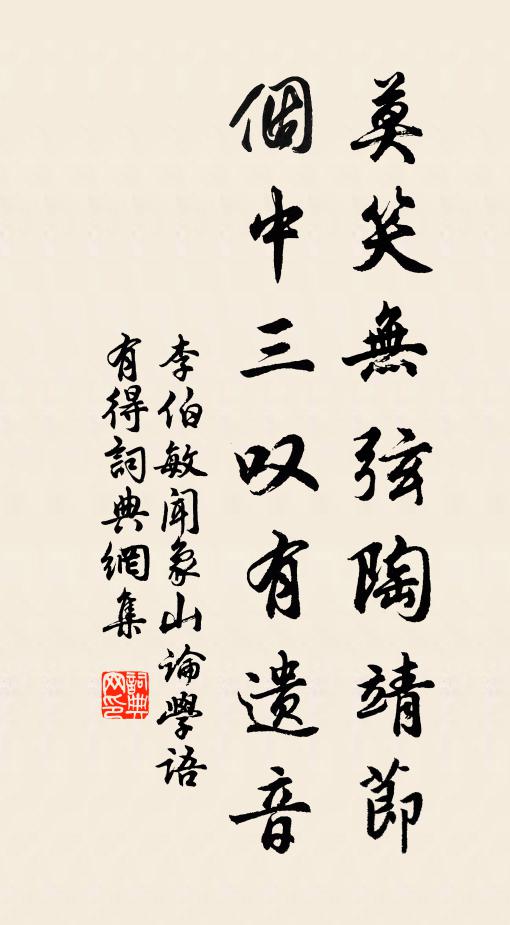 莫笑無弦陶靖節
個中三叹有遺音
李伯敏聞象山論學語
有得詞典網集
詞典
网印